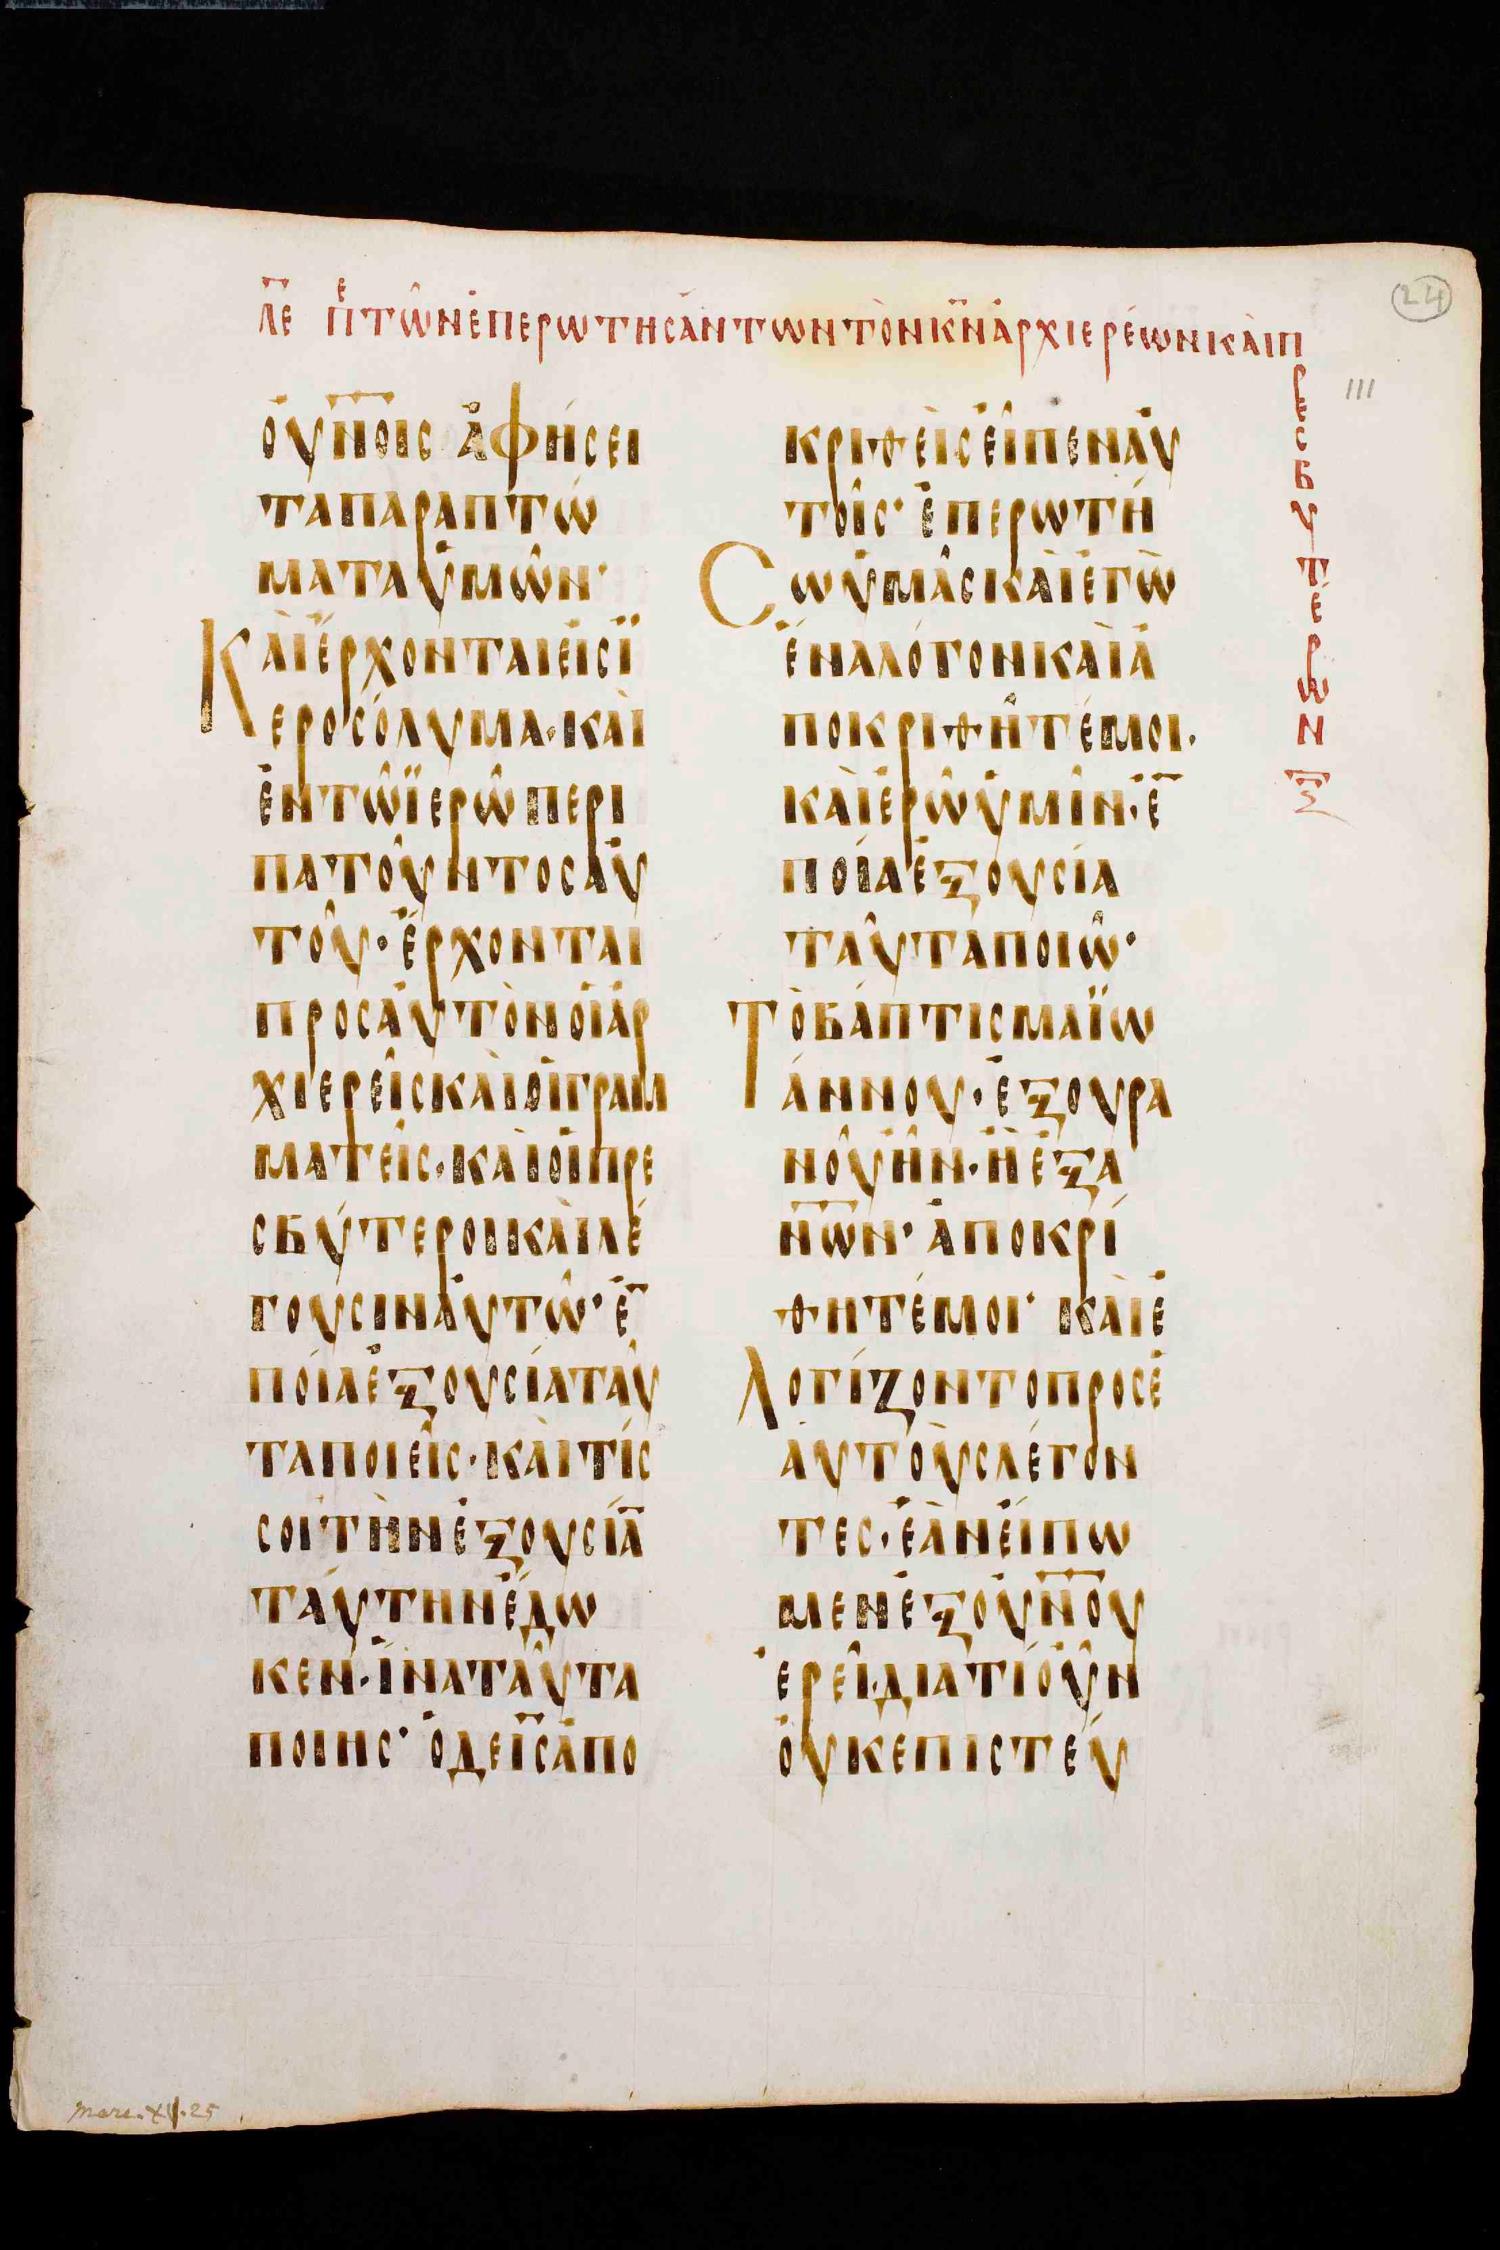 24
Λ̅Ε̅ Πε ΤῶΝἘΠΕΡΩΤΗΣΆΝΤΩΝΤῸΝΚ̅Ν̅ἈΡΧΙΕΡΈΩΝΚΑῚΠ
ΡΕΣΒΥΤΈΡΩΝ Ξ̅
111
ΟΥ̓Ν̅ΟΙΣ ἈΦΉΣΕΙ
ΤΑΠΑΡΑΠΤΏ
ΜΑΤΑὙΜῶΝ·
ΚΑῚἜΡΧΟΝΤΑΙΕἸΣΪ
ΕΡΟΣΌΛΥΜΑ·ΚΑῚ
ἘΝΤῶΪΕΡῶΠΕΡΙ
ΠΑΤΟῦΝΤΟΣΑΥ̓
ΤΟῦ·ἜΡΧΟΝΤΑΙ
ΠΡΟΣΑΥ̓ΤῸΝΟἹἈΡ
ΧΙΕΡΕῖΣΚΑῚΟἹΓΡΑΜ
ΜΑΤΕῖΣ·ΚΑῚΟἹΠΡΕ
ΣΒΎΤΕΡΟΙΚΑῚΛΈ
ΓΟΥΣΙΝΑΥ̓Τῶ·Ἐ̅
ΠΟΊΑἘΞΟΥΣΊΑΤΑῦ
ΤΑΠΟΙΕῖΣ·ΚΑῚΤΊΣ
ΣΟΙΤῊΝἘΞΟΥΣΊΑ̅
ΤΑΎΤΗΝἜΔΩ
ΚΕΝ·ἽΝΑΤΑῦΤΑ
ΠΟΙΗΣ· ὉΔΕΙ̅Σ̅ἈΠΟ
ΚΡΙΘΕῚΣΕἾΠΕΝΑΥ̓
ΤΟῖΣ· ἘΠΕΡΩΤΉ
ΣΩὙΜᾶΣΚΑῚἘΓῺ
ἝΝΑΛΌΓΟΝΚΑῚἈ
ΠΟΚΡΙΘΗΤΈΜΟΙ·
ΚΑῚἘΡῶὙΜῖΝ·Ἐ̅
ΠΟΊΑἘΞΟΥΣΊΑ
ΤΑῦΤΑΠΟΙῶ·
ΤῸΒΆΠΤΙΣΜΑΪΩ
ΆΝΝΟΥ·ἘΞΟΥΡΑ
ΝΟῦἮΝ·ἪἘΞΑ
Ν̅Ω̅Ν· ἈΠΟΚΡΊ
ΘΗΤΈΜΟΙ· ΚΑῚἘ
ΛΟΓΊΖΟΝΤΟΠΡΟΣἙ
ΑΥΤΟῪΣΛΈΓΟΝ
ΤΕΣ·ἘᾺΝΕἼΠΩ
ΜΕΝἘΞΟΥ̓Ν̅ΟΥ
ἘΡΕῖ·ΔΙΑΤΊΟὖΝ
ΟΥ̓ΚΕΠΙΣΤΕΎ
Marc. XI. 25